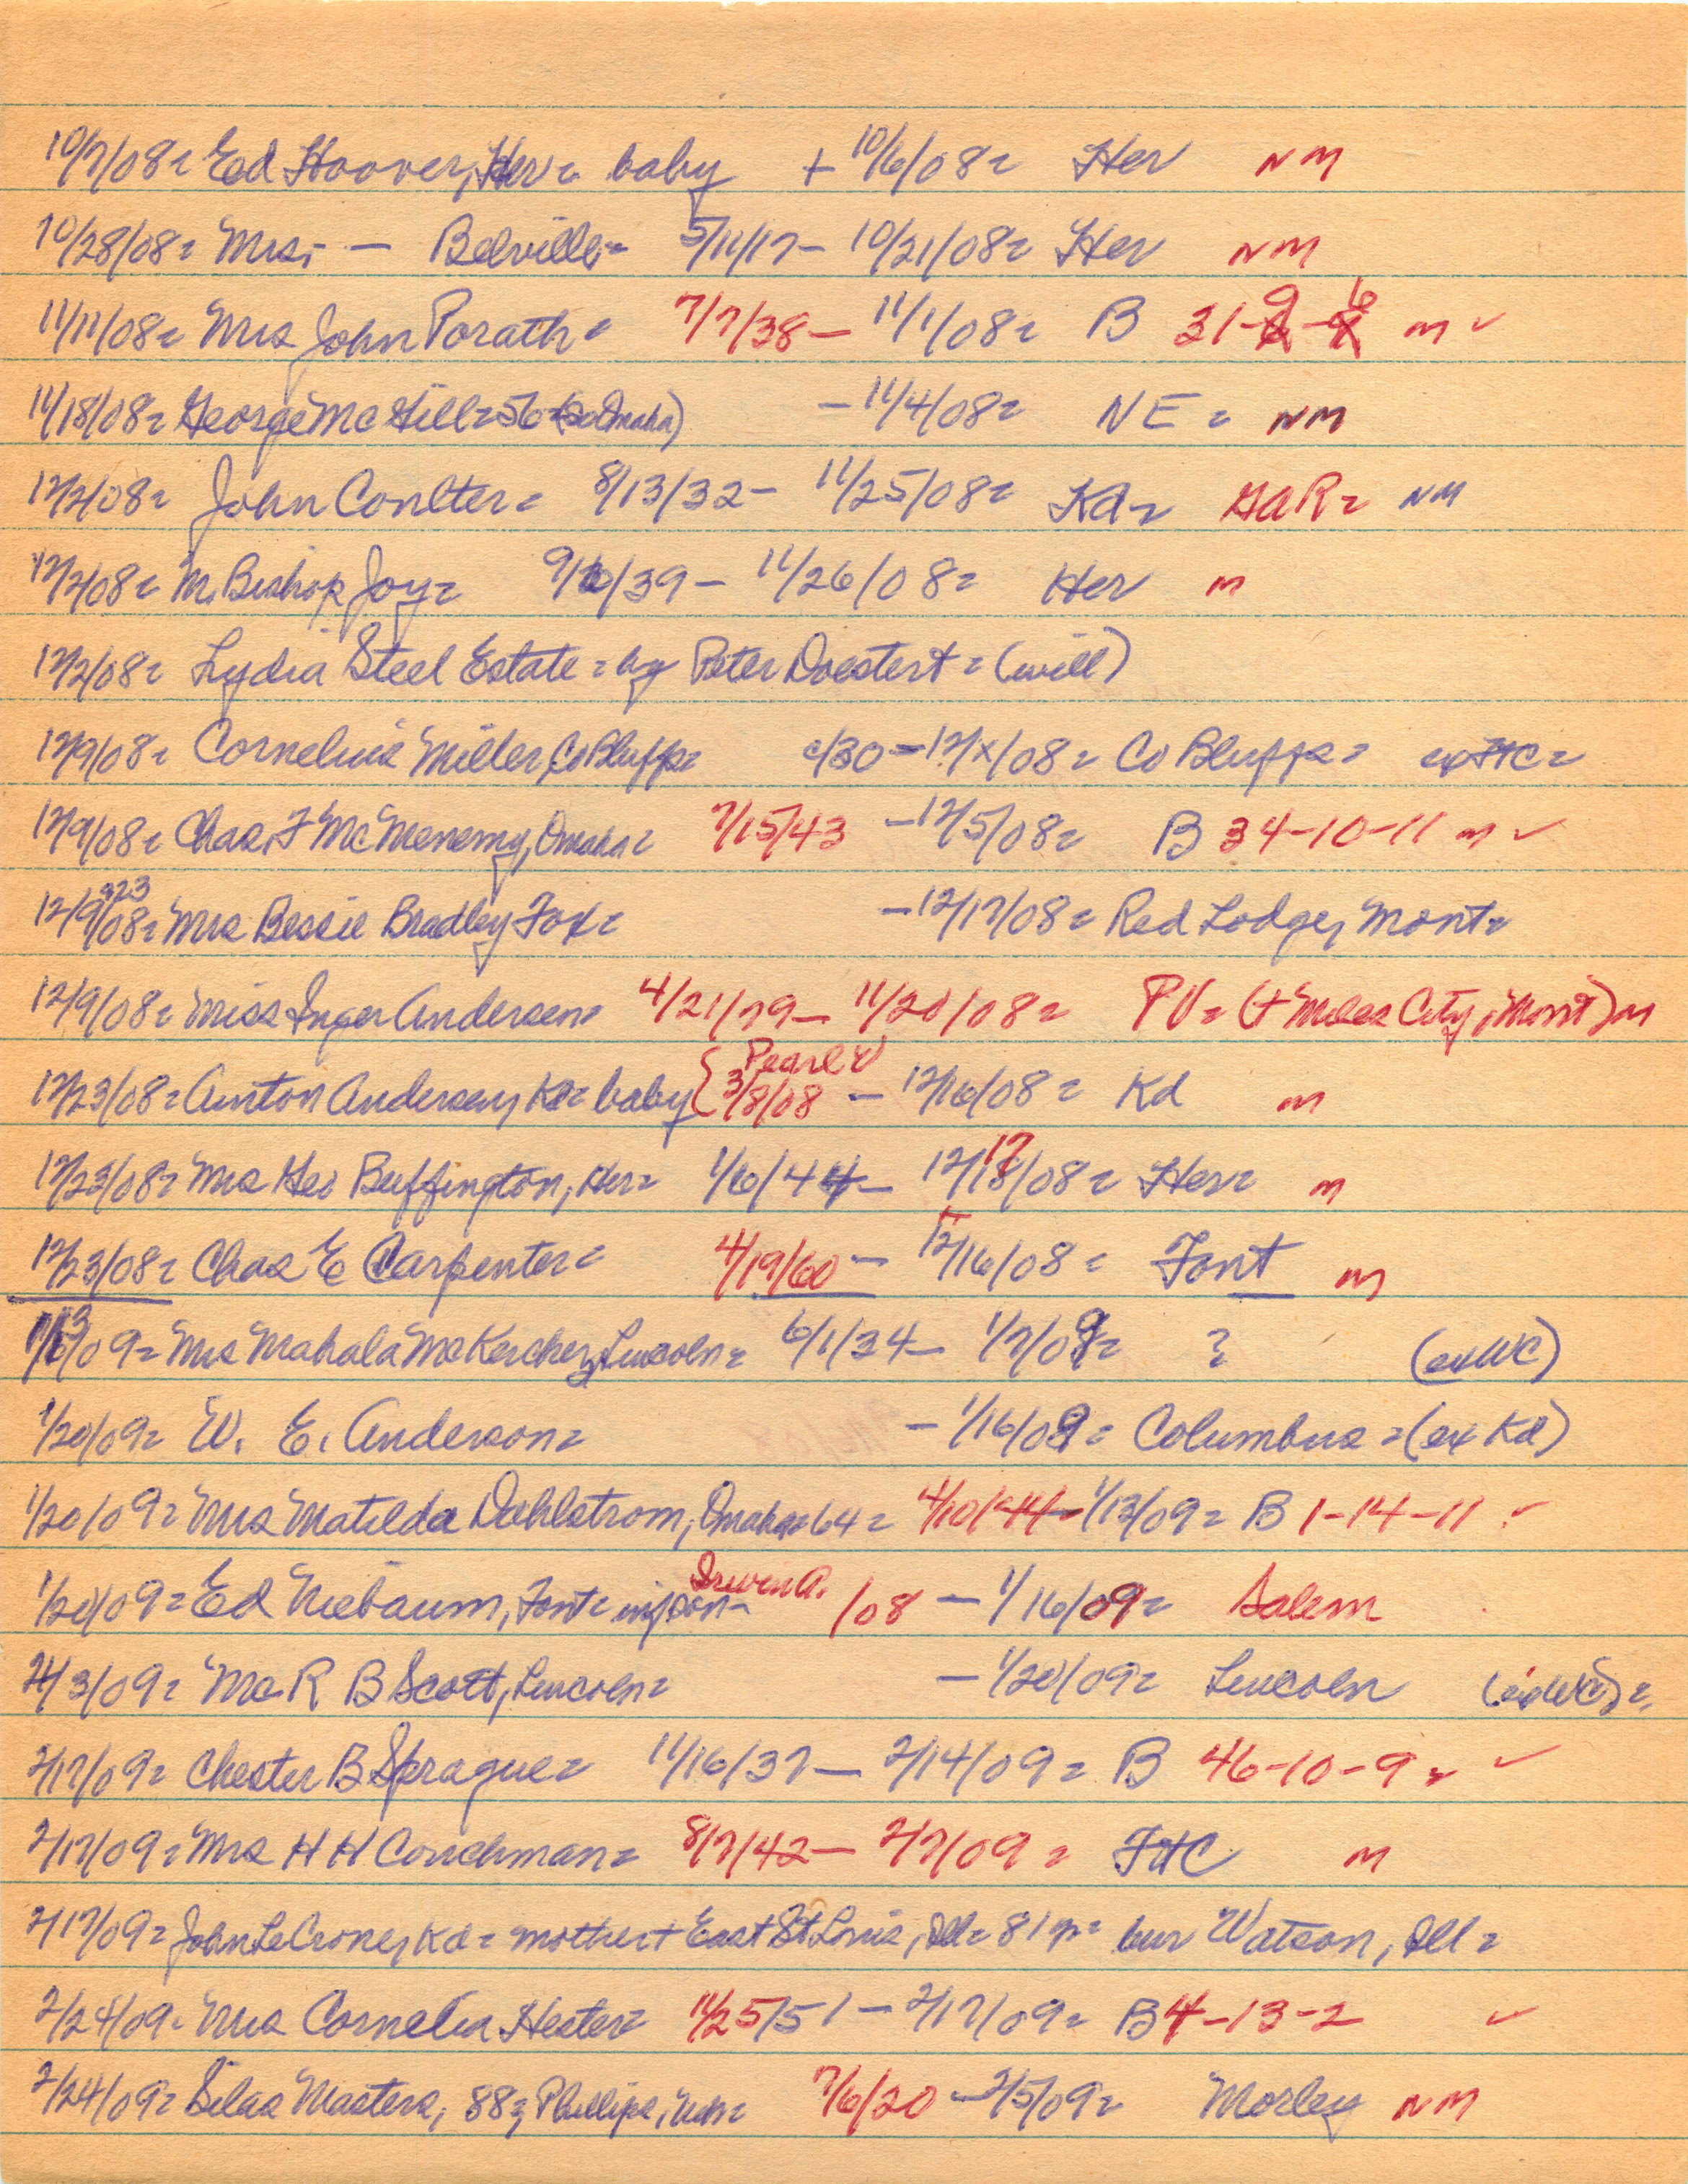 10/7/08= Ed Hoover, Her= baby + 10/6/08= Her NM
10/28/08= Mrs. — Belville= 5/11/17 – 10/21/08= Her NM
11/11/08= Mrs John Porath= 7/7/38 – 11/1/08= B 31-9-6 m ✓
11/18/08= George McGill=56 (So Omaha) – 11/4/08= NE= NM
12/2/08= John Coulter= 8/13/32 – 11/25/08= Kd= GAR= NM
12/2/08= M. Bishop Joy= 9/10/39 – 11/26/08= Her m
12/2/08= Lydia Steel Estate= by Peter Doestert= (will)
12/9/08= Cornelius Miller, Co Bluffs= c/30 – 12/x/08= Co Bluffs= exFtC=
12/9/08= Chas. F McMenemy, Omaha= 7/15/43 – 12/5/08= B 34-10-11 m ✓
12/9&23/08= Mrs Bessie Bradley Fox= – 12/17/08= Red Lodge, Mont=
12/9/08= Miss Inger Andersen= 4/21/79 – 11/20/08= PV= (+ Miles City, Mont) m
12/23/08= Anton Andersen, Kd= baby { Pearl V 3/8/08 – 12/16/08= Kd m
12/23/08= Mrs Geo Buffington, Her= 1/6/44 – 12/17/08= Her= m
12/23/08= Chas E Carpenter= 4/19/60 – 12/16/08= Font m
1/13/09= Mrs Mahala McKercher, Lincoln= 6/1/34 – 1/7/09= ? (exWC)
1/20/09= W. E. Anderson= – 1/16/09= Columbus= (ex Kd)
1/20/09= Mrs Matilda Dahlstrom, Omaha=64= 4/10/44 – 1/13/09= B 1-14-11 ✓
1/20/09= Ed Niebaum, Font= inf son – Irwin A. /08 – 1/16/09= Salem
2/3/09= R B Scott, Lincoln= – 1/20/09= Lincoln
2/17/09= Chester B Sprague= 11/16/37 – 2/14/09= B 46-10-9= ✓
2/17/09= Mrs H H Couchman= 8/7/42 – 2/7/09= FtC m
2/17/09= John LeCrone, Kd= mother + East St Louis, Ill= 81 yr= bur Watson, Ill=
2/24/09= Mrs Cornelia Hester= 11/25/51 – 2/17/09= B 4-13-2 ✓
2/24/09= Silas Masters, 88, Phillips, Neb= 7/6/20 – 2/5/09= Morley NM